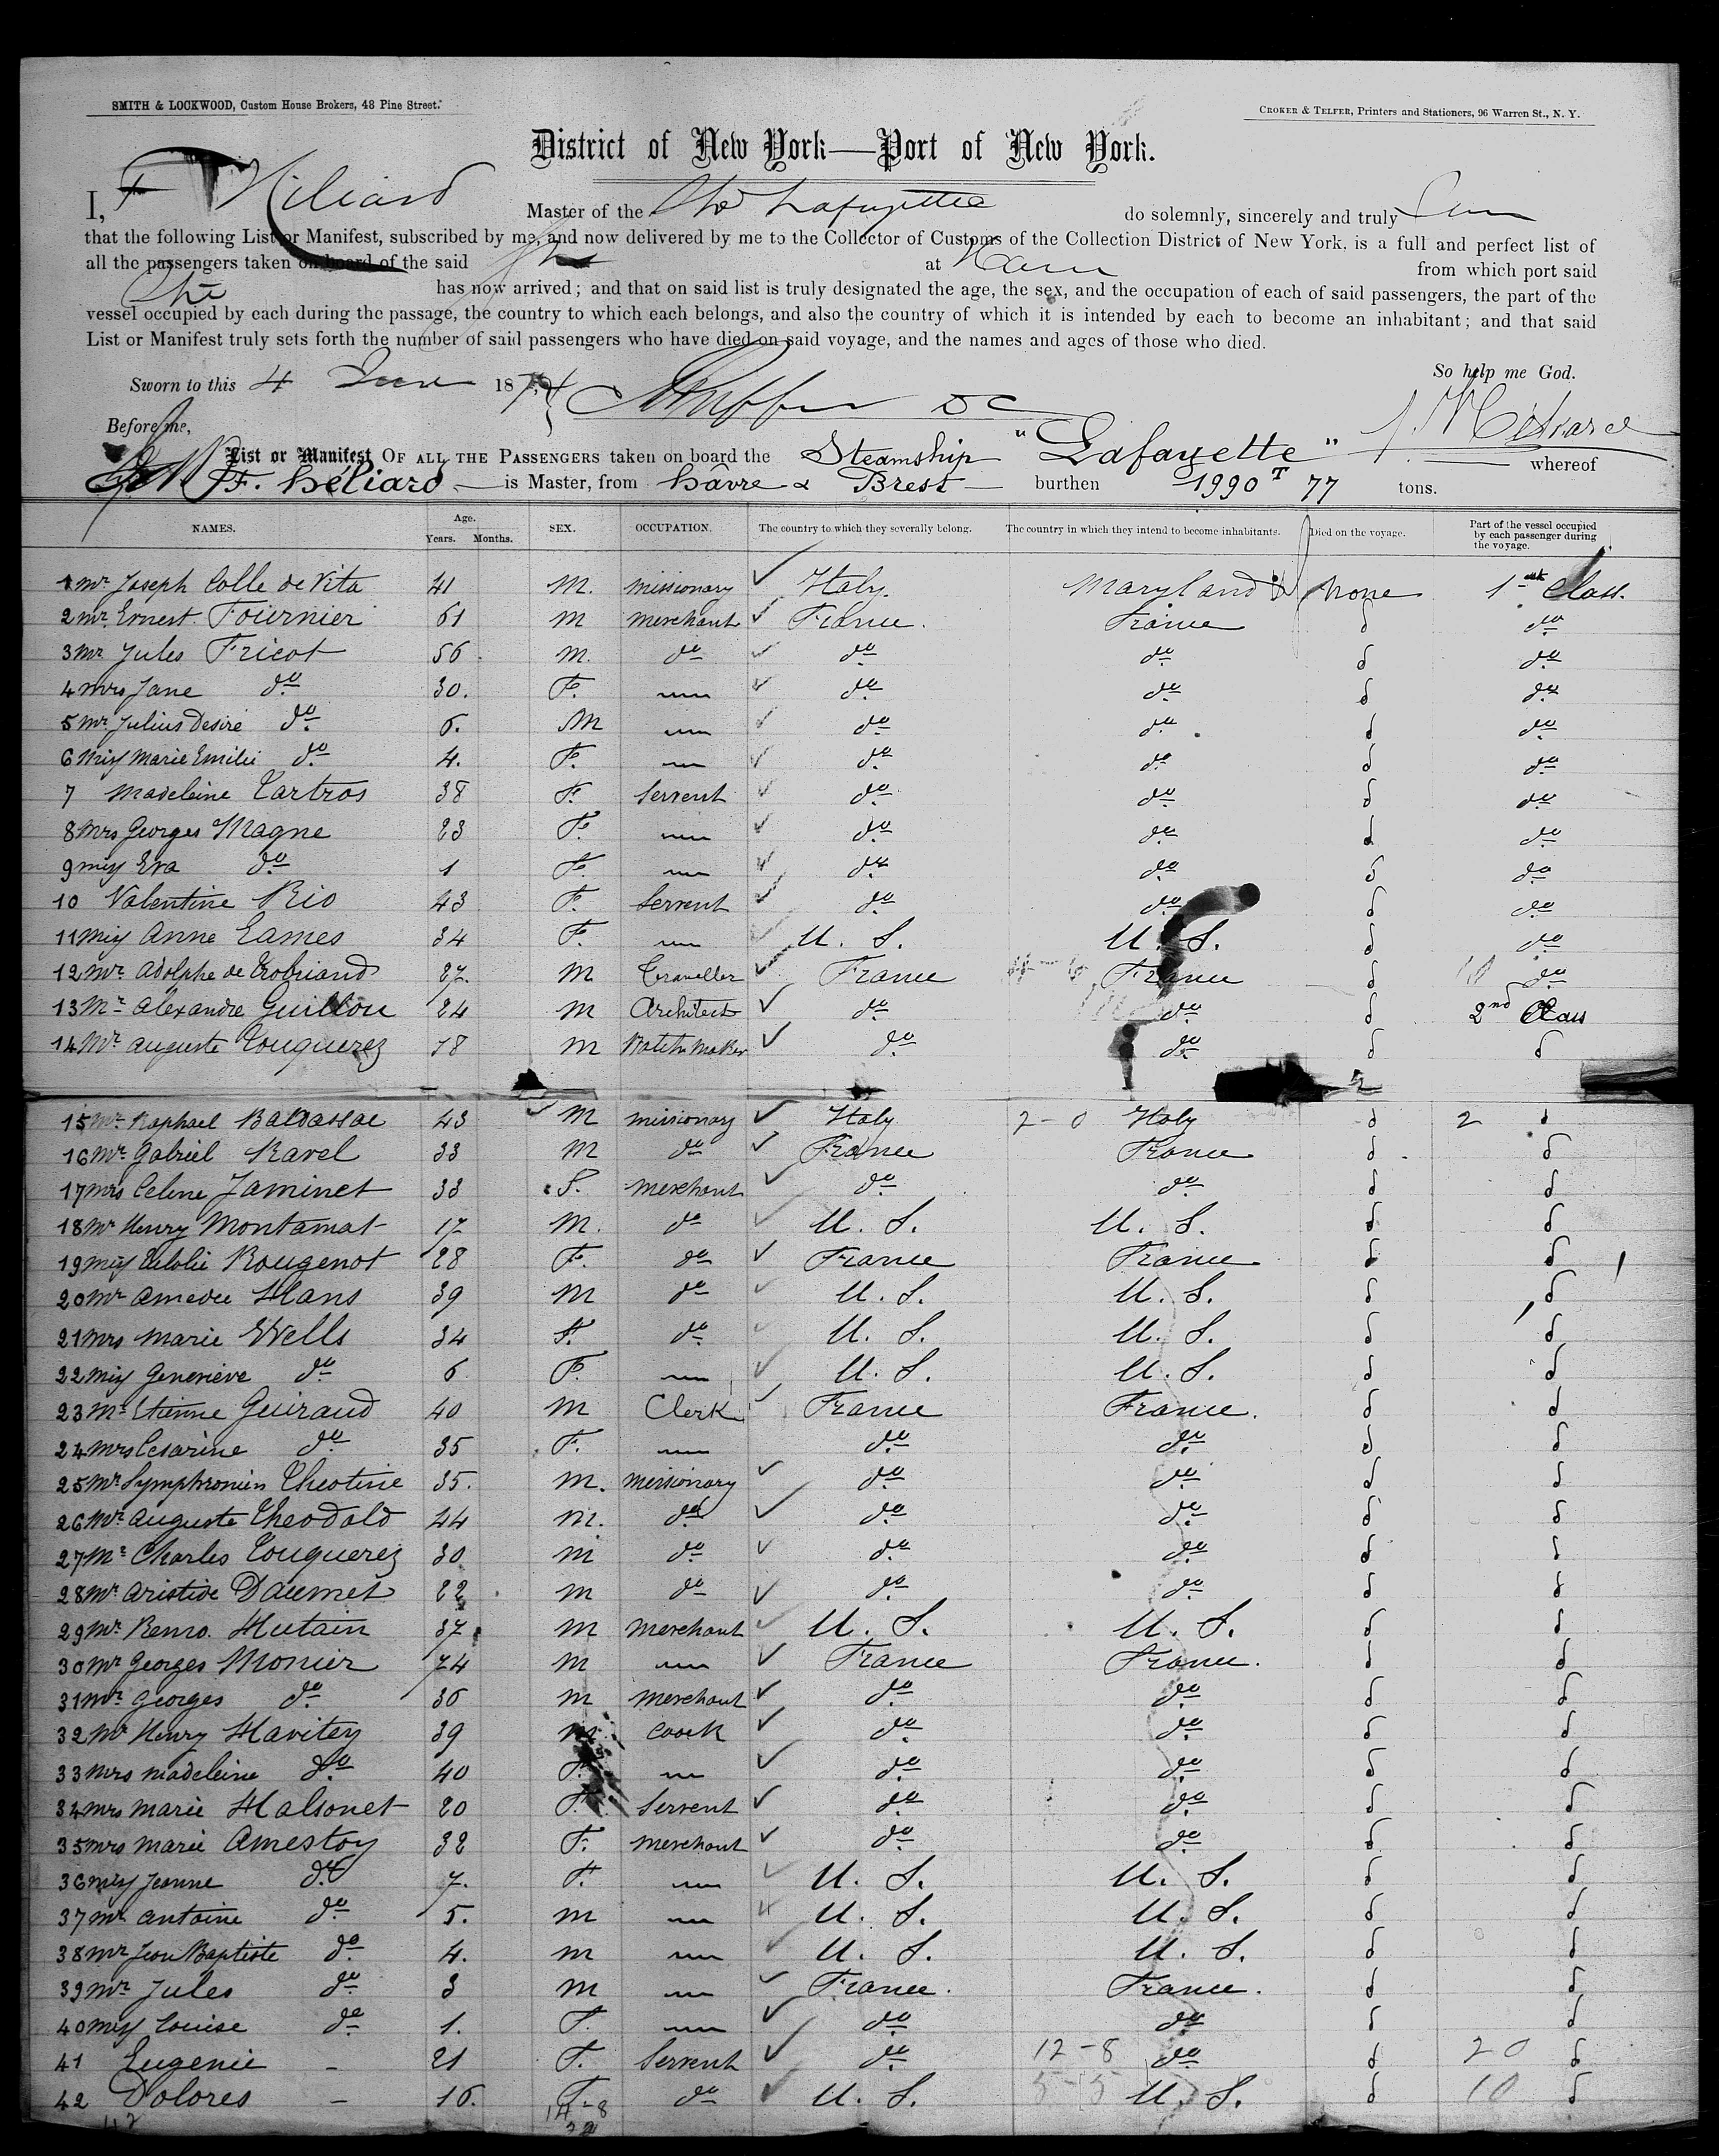 SMITH & LOCKWOOD, Custom House Brokers, 48 Pine Street.
CROKER & TELFER, Printers and Stationers, 96 Warren St., N. Y.
District of New York—Port of New York.
I, F Héliard Master of the Str Lafayette do solemnly, sincerely and truly
that the following List or Manifest, subscribed by me, and now delivered by me to the Collector of Customs of the Collection District of New York, is a full and perfect list of
all the passengers taken on board of the said at Havre from which port said
has now arrived; and that on said list is truly designated the age, the sex, and the occupation of each of said passengers, the part of the
vessel occupied by each during the passage, the country to which each belongs, and also the country of which it is intended by each to become an inhabitant; and that said
List or Manifest truly sets forth the number of said passengers who have died on said voyage, and the names and ages of those who died.
So help me God.
Sworn to this 4 187
Before me,
List or Manifest OF ALL THE PASSENGERS taken on board the Steamship "Lafayette" whereof
F. héliard is Master, from hâvre & Brest burthen 1990 T 77 tons.
NAMES. Age. Years. Months. SEX. OCCUPATION. The country to which they severally belong. The country in which they intend to become inhabitants. Died on the voyage. Part of the vessel occupied by each passenger during the voyage.
1 Mr Joseph Colle de Vita 41 M. missionary Italy. Maryland None 1st Class.
2 Mr. Ernest Fournier 61 M merchant France. France d do
3 Mr Jules Fricot 56 M. do do do d do
4 Mrs Jane do 30. F. — do do d do
5 Mr. Julius Desiré do 6. M — do do d do
6 Miss Marie Emilie do 4. F. — do do d do
7 Madeleine Tartros 38 F. Servent do do d do
8 Mrs Georges Magne 23 F. — do do d do
9 Miss Eva do 1 F. — do do d do
10 Valentine Rio 43 F. Servent do do d do
11 Miss Anne Eames 34 F. — U. S. U. S. d do
12 Mr. Adolphe de Trobriand 27. M Traveller France France d 10 do
13 Mr Alexandre Guillou 24 M Architect do do d 2nd Class
14 Mr Auguste Touquerez 18 M Watch Maker do do d d
15 Mr Raphael Baldassae 43 M missionary Italy 2-0 Italy d 2 d
16 Mr. Gabriel Ravel 33 M do France France d d
17 Mrs Celine Jaminet 33 F. merchant do do d d
18 Mr Henry Montamat 17 M. do U. S. U. S. d d
19 Miss Rougenot 28 F. do France France d d
20 Mr Amedee Hans 39 M do U. S. U. S. d d
21 Mrs Marie Wells 34 F. do U. S. U. S. d d
22 Miss Genevieve do 6 F. — U. S. U. S. d d
23 Mr Etienne Guiraud 40 M Clerk France France. d d
24 Mrs Cesarine do 35 F. — do do d d
25 Mr Symphronien Theotine 35. M. missionary do do d d
26 Mr. Auguste Theodold 44 M. do do do d d
27 Mr Charles Touquerez 30 M do do do d d
28 Mr. Aristide Daumet 22 M do do do d d
29 Mr. Remo. Hutain 37 M Merchant U. S. U. S. d d
30 Mr Georges Monier 74 M — France France. d d
31 Mr. Georges do 36 M merchant do do d d
32 Mr Henry Havitey 39 M coock do do d d
33 Mrs Madeleine do 40 F. — do do d d
34 Mrs Marie Halsonet 20 F. Servent do do d d
35 Mrs Marie Amestoy 32 F. merchant do do d d
36 Miss Jeanne do 7. F. — U. S. U. S. d d
37 Mr Antoine do 5. M — U. S. U. S. d d
38 Mr Jean Baptiste do 4. M — U. S. U. S. d d
39 Mr. Jules do 3 M — France. France. d d
40 Miss Louise do 1. F. — do do d d
41 Eugenie - 21 F. Servent do 12-8 do d 20 d
42 Dolores - 16. F. do U. S. U. S. d 10 d
42 14-8